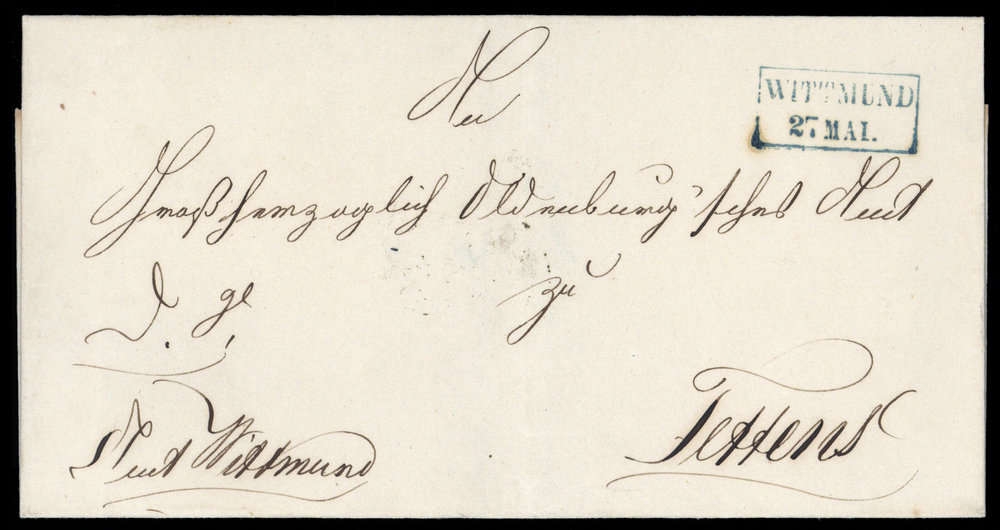 An
WITTMUND
27 MAI.
Großherzoglich Oldenburg'sches Amt
zu
D. ge
Tettens
Amt Wittmund